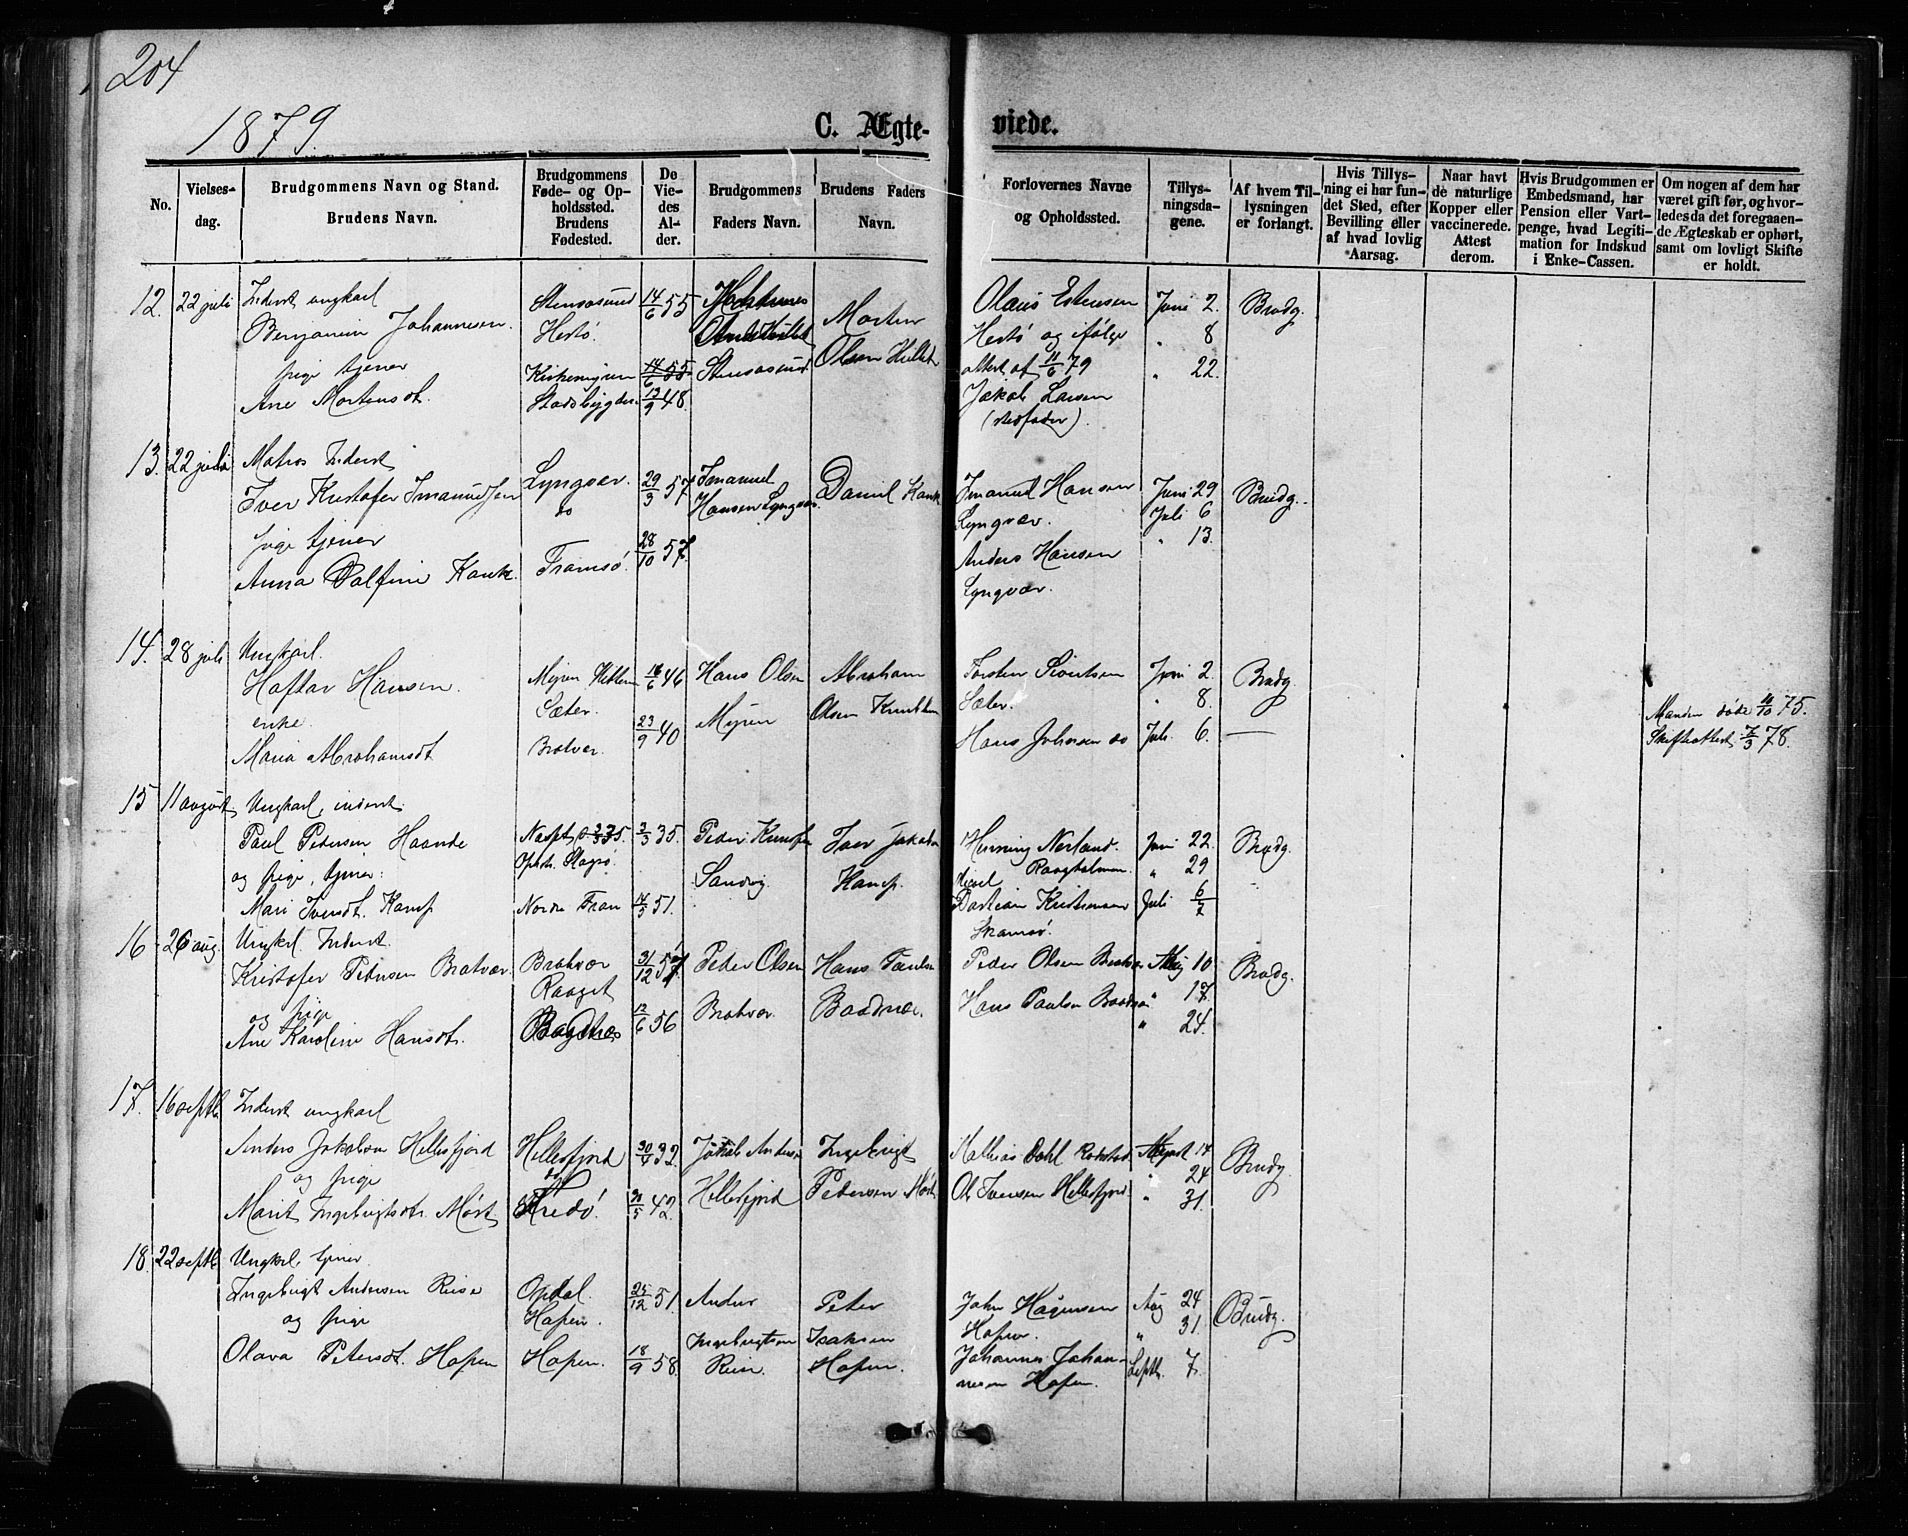 204
1879.
C. Ægte-
viede.
No.
Vielses-
dag.
Brudgommens Navn og Stand.
Brudens Navn.
Brudgommens
Føde- og Op-
holdssted.
Brudens
Fødested.
De
Vie-
des
Al-
der.
Brudgommens
Faders Navn.
Brudens Faders
Navn.
Forlovernes Navne
og Opholdssted.
Tillys-
ningsda-
gene.
Af hvem Til-
lysningen
er forlangt.
Hvis Tillys-
ning ei har fun-
det Sted, efter
Bevilling eller
af hvad lovlig
Aarsag.
Naar havt
de naturlige
Kopper eller
vaccinerede.
Attest
derom.
Hvis Brudgommen er
Embedsmand, har
Pension eller Vart-
penge, hvad Legiti-
mation for Indskud
i Enke-Cassen.
Om nogen af dem har
været gift før, og hvor-
ledes da det foregaaen-
de Ægteskab er ophørt,
samt om lovligt Skifte
er holdt.
12. 22 juli
Inderst ungkarl
Benjamin Johannesen.
pige tjener
Ane Mortensdt.
Stensøsund
Hestø.
Kirkemyren
Stadsbygden
14/6 55
14/6 55
13/9 48.
Stensøsund.
Morten
Olsen
Olaus Estensen
Hestø og ifølge
attest af 11/6 79
Jakob Larsen
(stedfader).
Juni 2.
" 8
" 22.
Brudg.
13. 22 juli
Matros Inderst
Iver Kristofer Imanuelsen
pige tjener
Anna Dalfine Kank.
Lyngvær.
do
Tromsø.
29/3 57
28/10 57.
Imanuel
Hansen Lyngvær.
Daniel Kank
Imanuel Hansen
Lyngvær.
Anders Hansen
Lyngvær.
Juni 29
Juli 6
" 13.
Brudg.
14. 28 juli
Ungkarl.
Haftar Hansen.
enke.
Maria Abrahamsdt
Myren
Sæter.
Bratvær.
16/6 46
23/9 40
Hans Olsen
Myren
Abraham
Olsen
Torsten Sivertsen
Sæter.
Hans Johnsen do
Juni 2.
" 8.
Juli 6.
Brudg.
—
Manden døde 11/10 75.
Skifteattest 7/3 78.
15 11 august
Ungkarl, inderst.
Paul Pedersen Haande
og pige, tjener:
Mari Iversdt. Kamp
Opholdst.
Nordre Frøan
3/3 35.
14/5 51.
Peder Knudsen
Sandvig
Iver Jakobsen
Kamp.
Henning Nerland.
Bastian Kristiansen
Skamsø.
Juni 22
" 29
Juli 6/7
Brudg.
16 26 aug.
Ungkl. Inderst.
Kristofer Pedersen Bratvær.
og pige
Ane Karoline Hansdt.
Bratvær
31/12 57
12/6 56
Peder Olsen
Bratvær.
Hans Paulsen
Baadnæs.
Peder Olsen Bratvær
Hans Paulsen Baadnæs
Aug 10
" 17.
" 24.
Brudg.
17. 16 septb.
Inderst ungkarl
Anders Jakobsen Hellesfjord
og pige
Marit Ingebrigtsdt. Mørt
Hellesfjord
do
Fredø.
30/4 32.
31/5 42.
Jakob Andersen
Hellesfjord
Ingebrigt
Pedersen Mørt
Mathias Dahl
Ol. Iversen Hellesfjord.
August 14
" 24
" 31.
Brudg.
18. 22 septb.
Ungkarl, tjener
Ingebrigt Andersen Reise
og pige
Olava Petersdt. Hopen
Opdal.
Hopen.
Hopen.
25/12 51.
18/9 58.
Anders
Ingebrigtsen
Peter
Isaksen
Hopen.
John Hagensen
Hopen.
Johannes Johan-
nesen Hopen.
Aug 24
" 31.
Septb. 7.
Brudg.